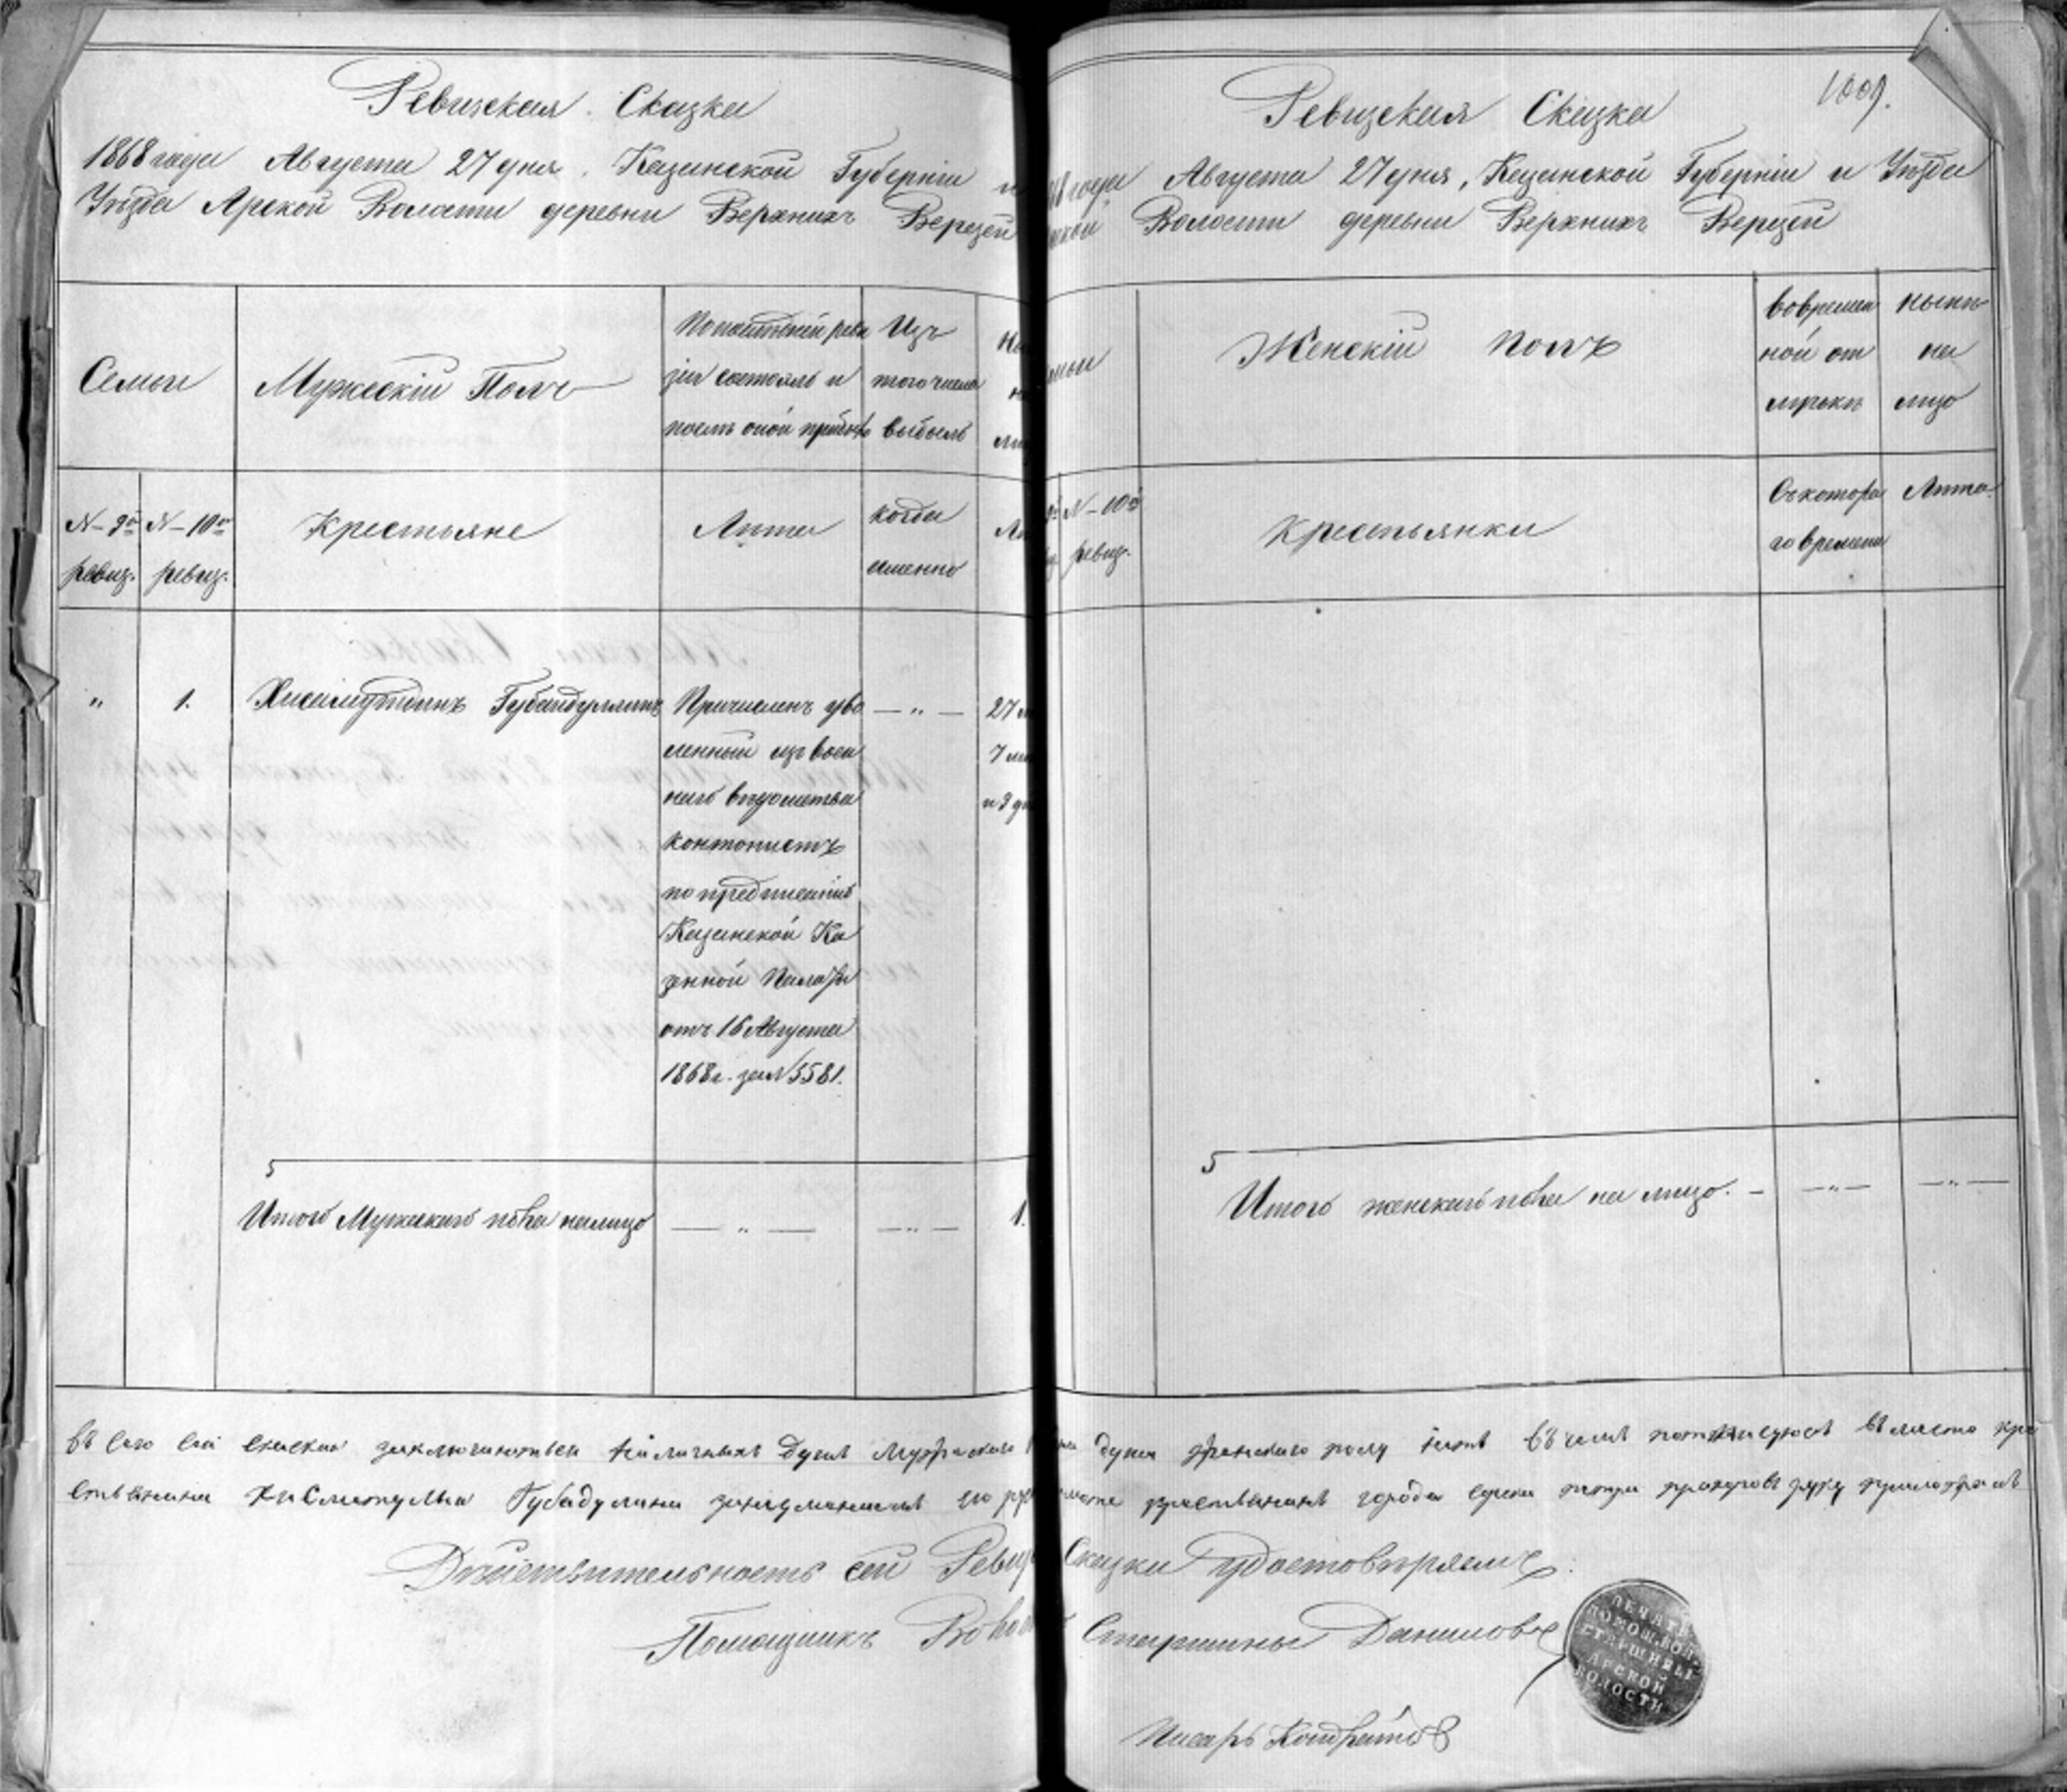 Ревизская Сказка
1868 года Августа 27 дня. Казанской Губерніи и
Уѣзда Арской Волости деревни Верхнихъ Верезей
Семьи
Мужескій Полъ
По послѣдней реви
зіи состоялъ и
послѣ оной прибыло
Изъ
того числа
выбыло
№ 9й
ревиз.
№ 10й
ревиз.
Крестьяне
Лѣта
когда
именно
"
1.
Хисамутдинъ Губайдуллинъ
Причисленъ уво
ленный изъ воен
наго вѣдомства
контонистъ
по предписанію
Казанской Ка
зенной Палаты
отъ 16 Августа
1868 г. за № 5581.
— " —
27
7
и 9
Итого Мужескаго пола на лицо
— " —
— " —
1.
1009.
Ревизская Сказка
года Августа 27 дня, Казанской Губерніи и Уѣзда
Волости деревни Верхнихъ Верезей
Женскій Полъ
Во времен
ной от
лучкѣ
нынѣ
на
лицо
№ 10й
ревиз.
Крестьянки
Съ котора
го времени
Лѣта.
Итого женскаго пола на лицо. —
— " —
— " —
заключается наличныхъ душъ
душа женскаго полу
Губадулина
города
Дѣйствительность сей Ревиз Сказки удостовѣряемъ:
Помощникъ Воло Старшины Даниловъ
ПЕЧАТЬ
ПОМОЩ. ВОЛ.
СТАРШИНЫ
АРСКОЙ
ВОЛОСТИ
Писарь Кондратовъ